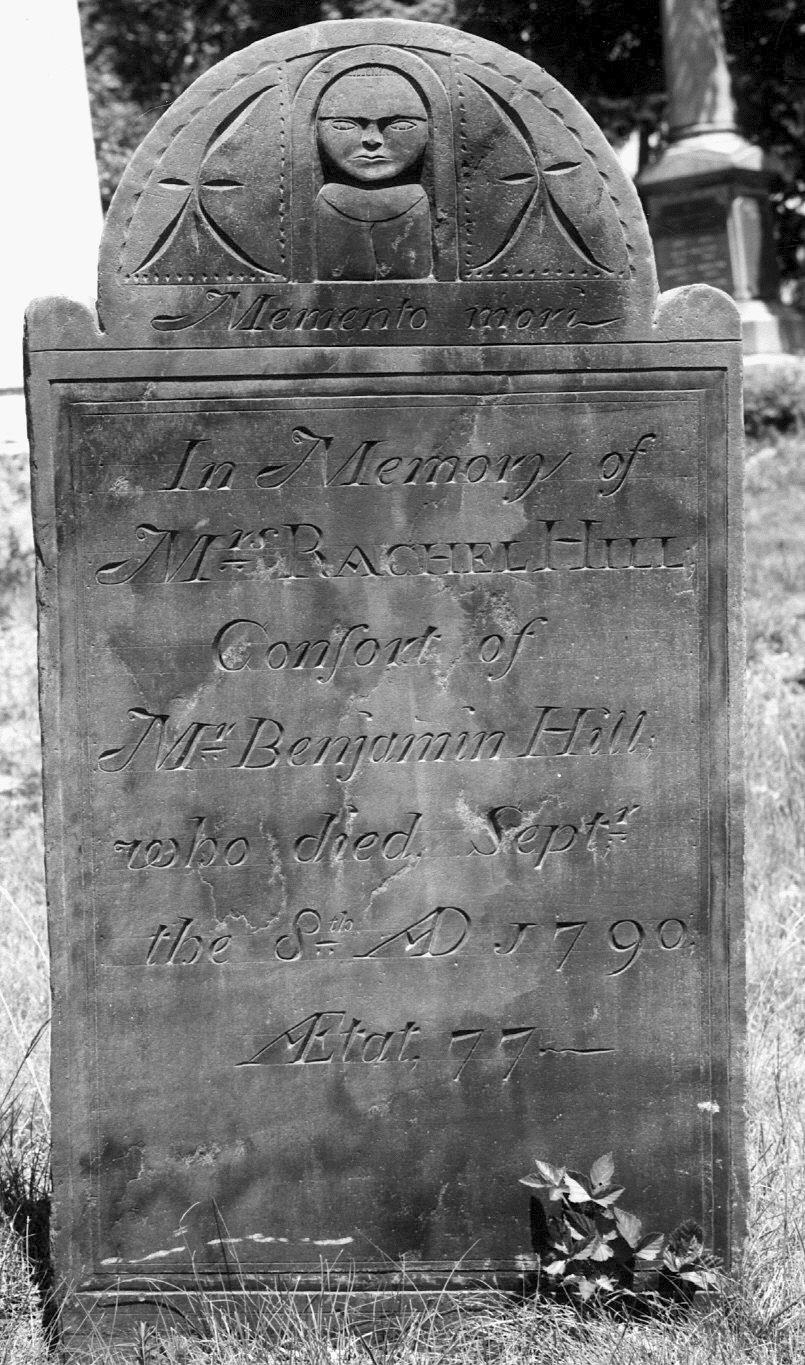 Memento mori
In Memory of
Mrs RACHEL HILL,
Conſort of
Mr Benjamin Hill,
who died, Septr
the 8th AD 1790,
Ætat, 77